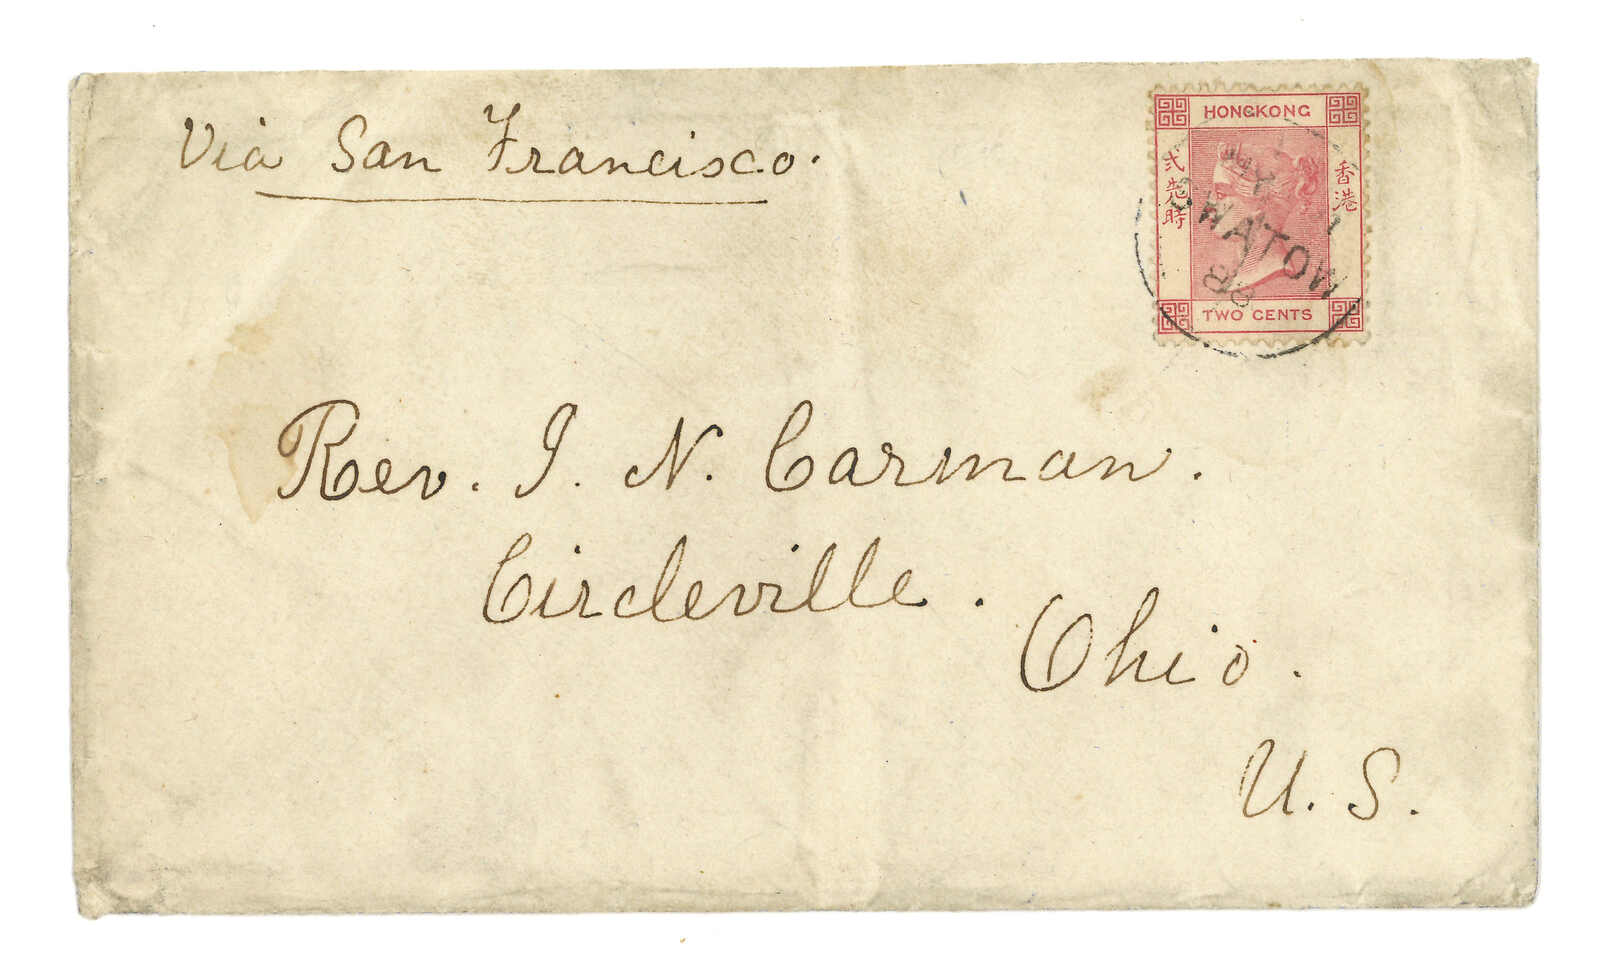 Via San Francisco.
HONGKONG
香港
弍先時
SWATOW
88
TWO CENTS
Rev. I. N. Carman.
Circleville.
Ohio.
U. S.